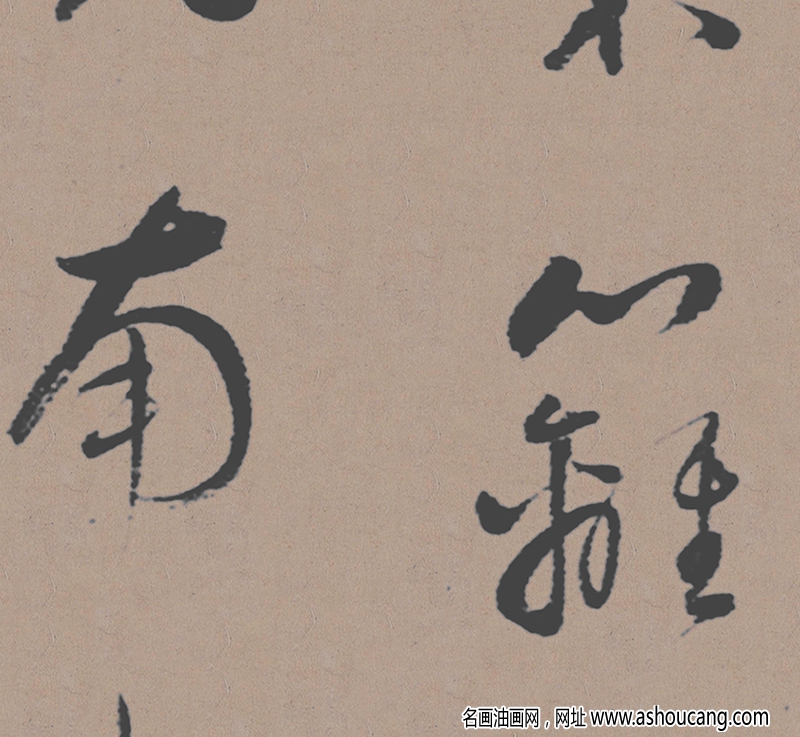 籬
南
名画油画网，网址 www.ashoucang.com